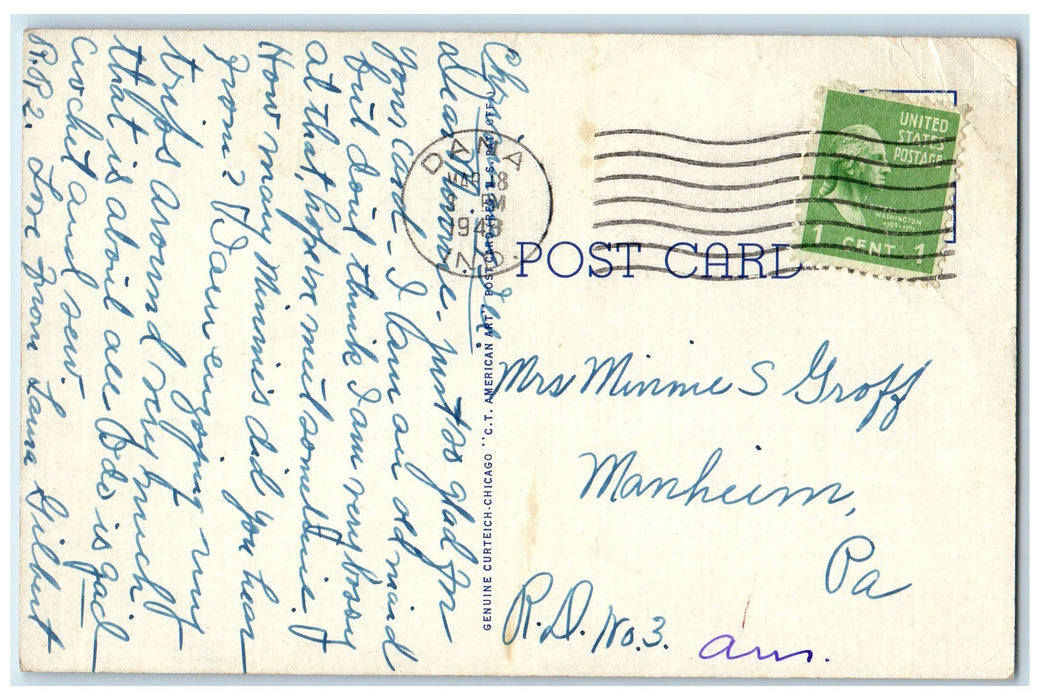 Chrisman, Ill
dear Minnie. just so glad for
your card - I am an old maid
but don't think I am very bossy
at that, hope we meet sometime.
How many Minnie's did you hear
from? I am enjoying my
trips around very much
that is about all I do is gad
crochet and sew.
R.R.2. Love from Laura Gilbert
GENUINE CURTEICH-CHICAGO "C.T. AMERICAN ART" POST CARD (REG. U.S. PAT. OFF.)
DANA
MAR 18
PM
1948
IND.
UNITED
STATES
POSTAGE
WASHINGTON
1 CENT 1
POST CARD
Mrs Minnie S Groff
Manheim,
Pa
R.D. No. 3.
ans.